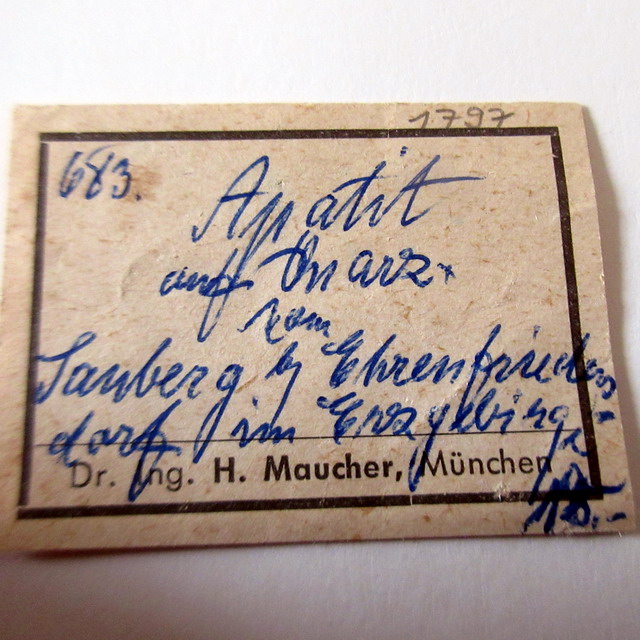 1797
683.
Apatit
auf Quarz
vom
Sauberg b/ Ehrenfrieders-
dorf im Erzgebirge
Dr. Ing. H. Maucher, München